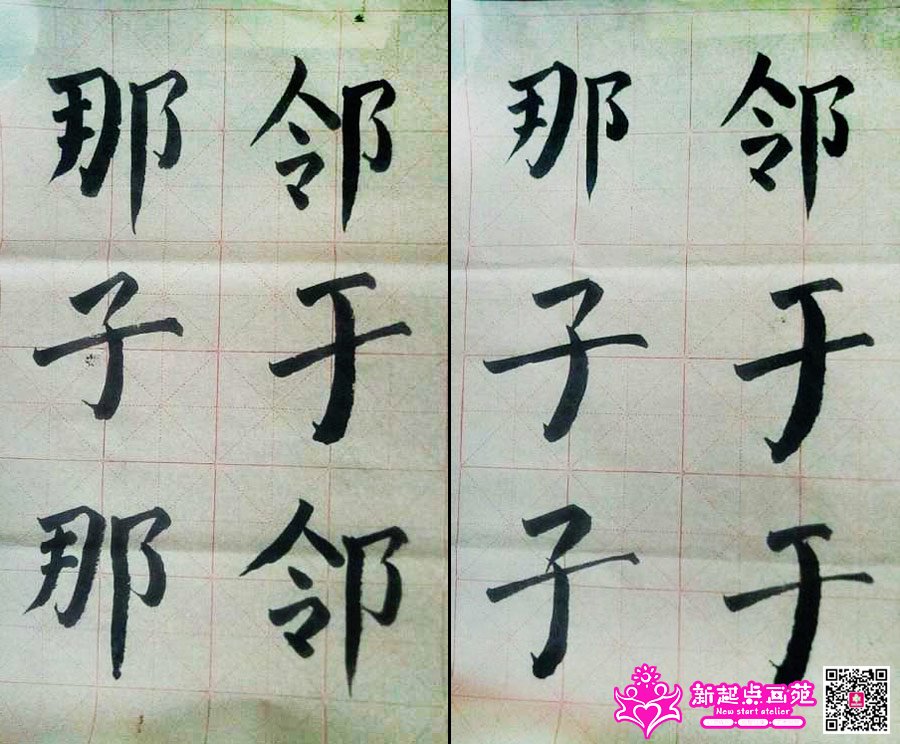 邻于邻
那子那
邻于于
那子子
新起点画苑
New start atelier